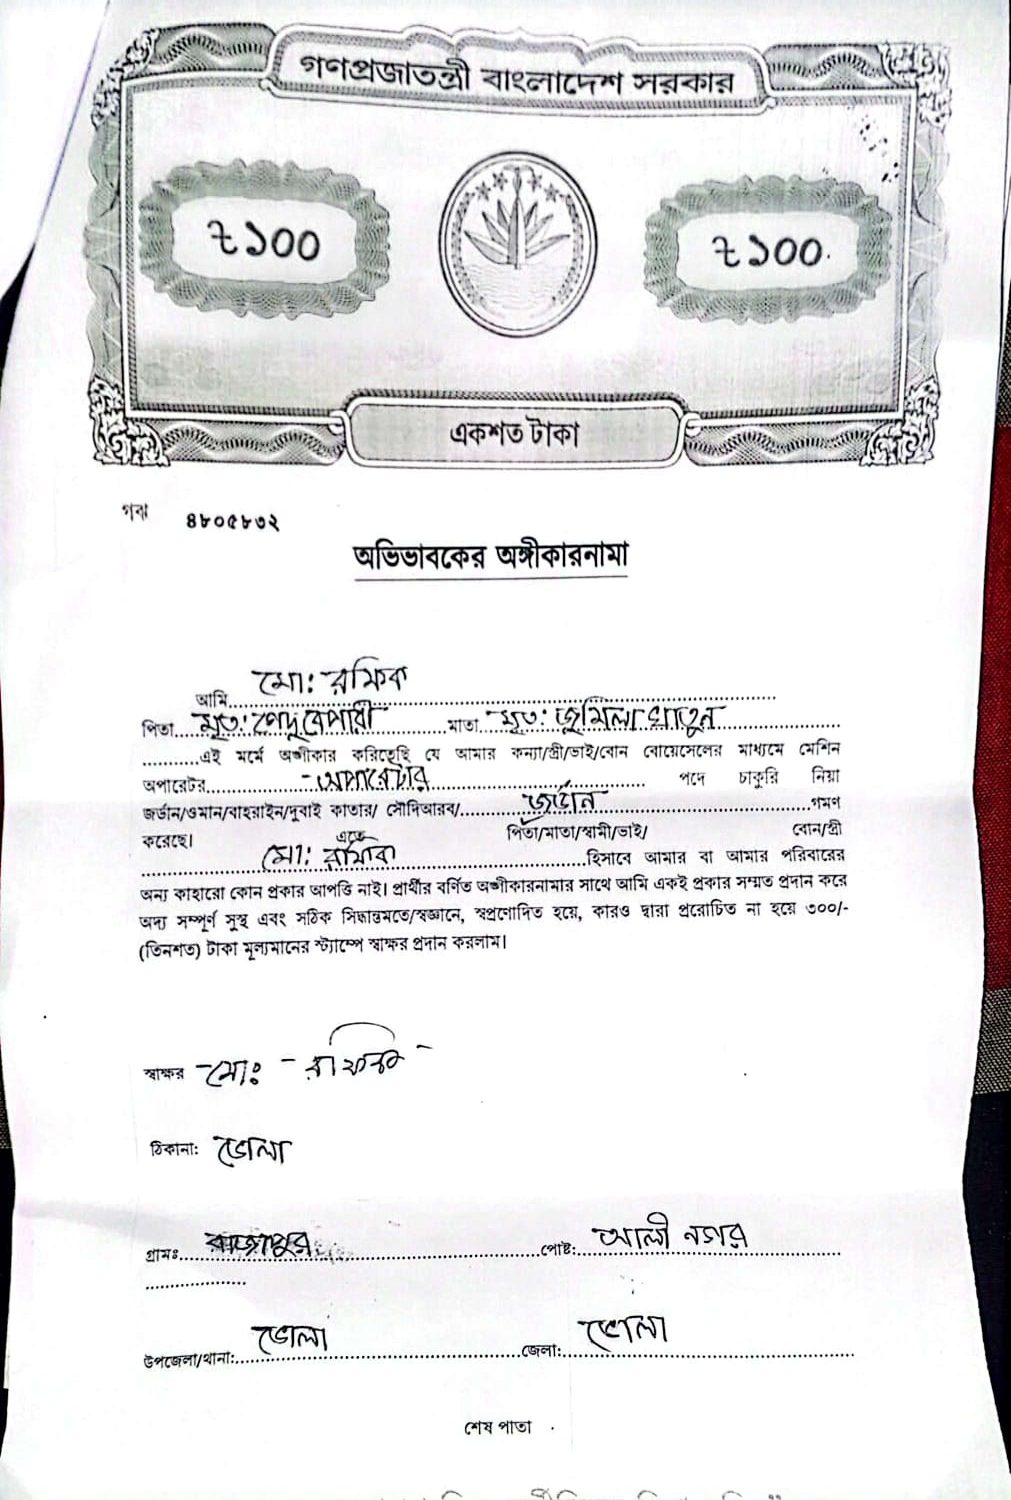 গণপ্রজাতন্ত্রী বাংলাদেশ সরকার
৳১০০ ৳১০০
একশত টাকা
গঝ ৪৮০৫৮৩২
অভিভাবকের অঙ্গীকারনামা
আমি মোঃ রফিক
পিতা মৃত: পেদু বেপারী মাতা মৃত: জুমিলা খাতুন
এই মর্মে অঙ্গীকার করিতেছি যে আমার কন্যা/স্ত্রী/ভাই/বোন বোয়েসেলের মাধ্যমে মেশিন
অপারেটর অপারেটার পদে চাকুরি নিয়া
জর্ডান/ওমান/বাহরাইন/দুবাই কাতার/ সৌদিআরব/ জর্ডান গমণ
করেছে। এতে পিতা/মাতা/স্বামী/ভাই/ বোন/স্ত্রী
মো: রফিক হিসাবে আমার বা আমার পরিবারের
অন্য কাহারো কোন প্রকার আপত্তি নাই। প্রার্থীর বর্ণিত অঙ্গীকারনামার সাথে আমি একই প্রকার সম্মত প্রদান করে
অদ্য সম্পূর্ণ সুস্থ এবং সঠিক সিদ্ধান্তমতে/স্বজ্ঞানে, স্বপ্রণোদিত হয়ে, কারও দ্বারা প্ররোচিত না হয়ে ৩০০/-
(তিনশত) টাকা মূল্যমানের স্ট্যাম্পে স্বাক্ষর প্রদান করলাম।
স্বাক্ষর মোঃ রফিক
ঠিকানা: ভোলা
গ্রামঃ রাজাপুর পোষ্ট: আলী নগর
উপজেলা/থানা: ভোলা জেলা: ভোলা
শেষ পাতা